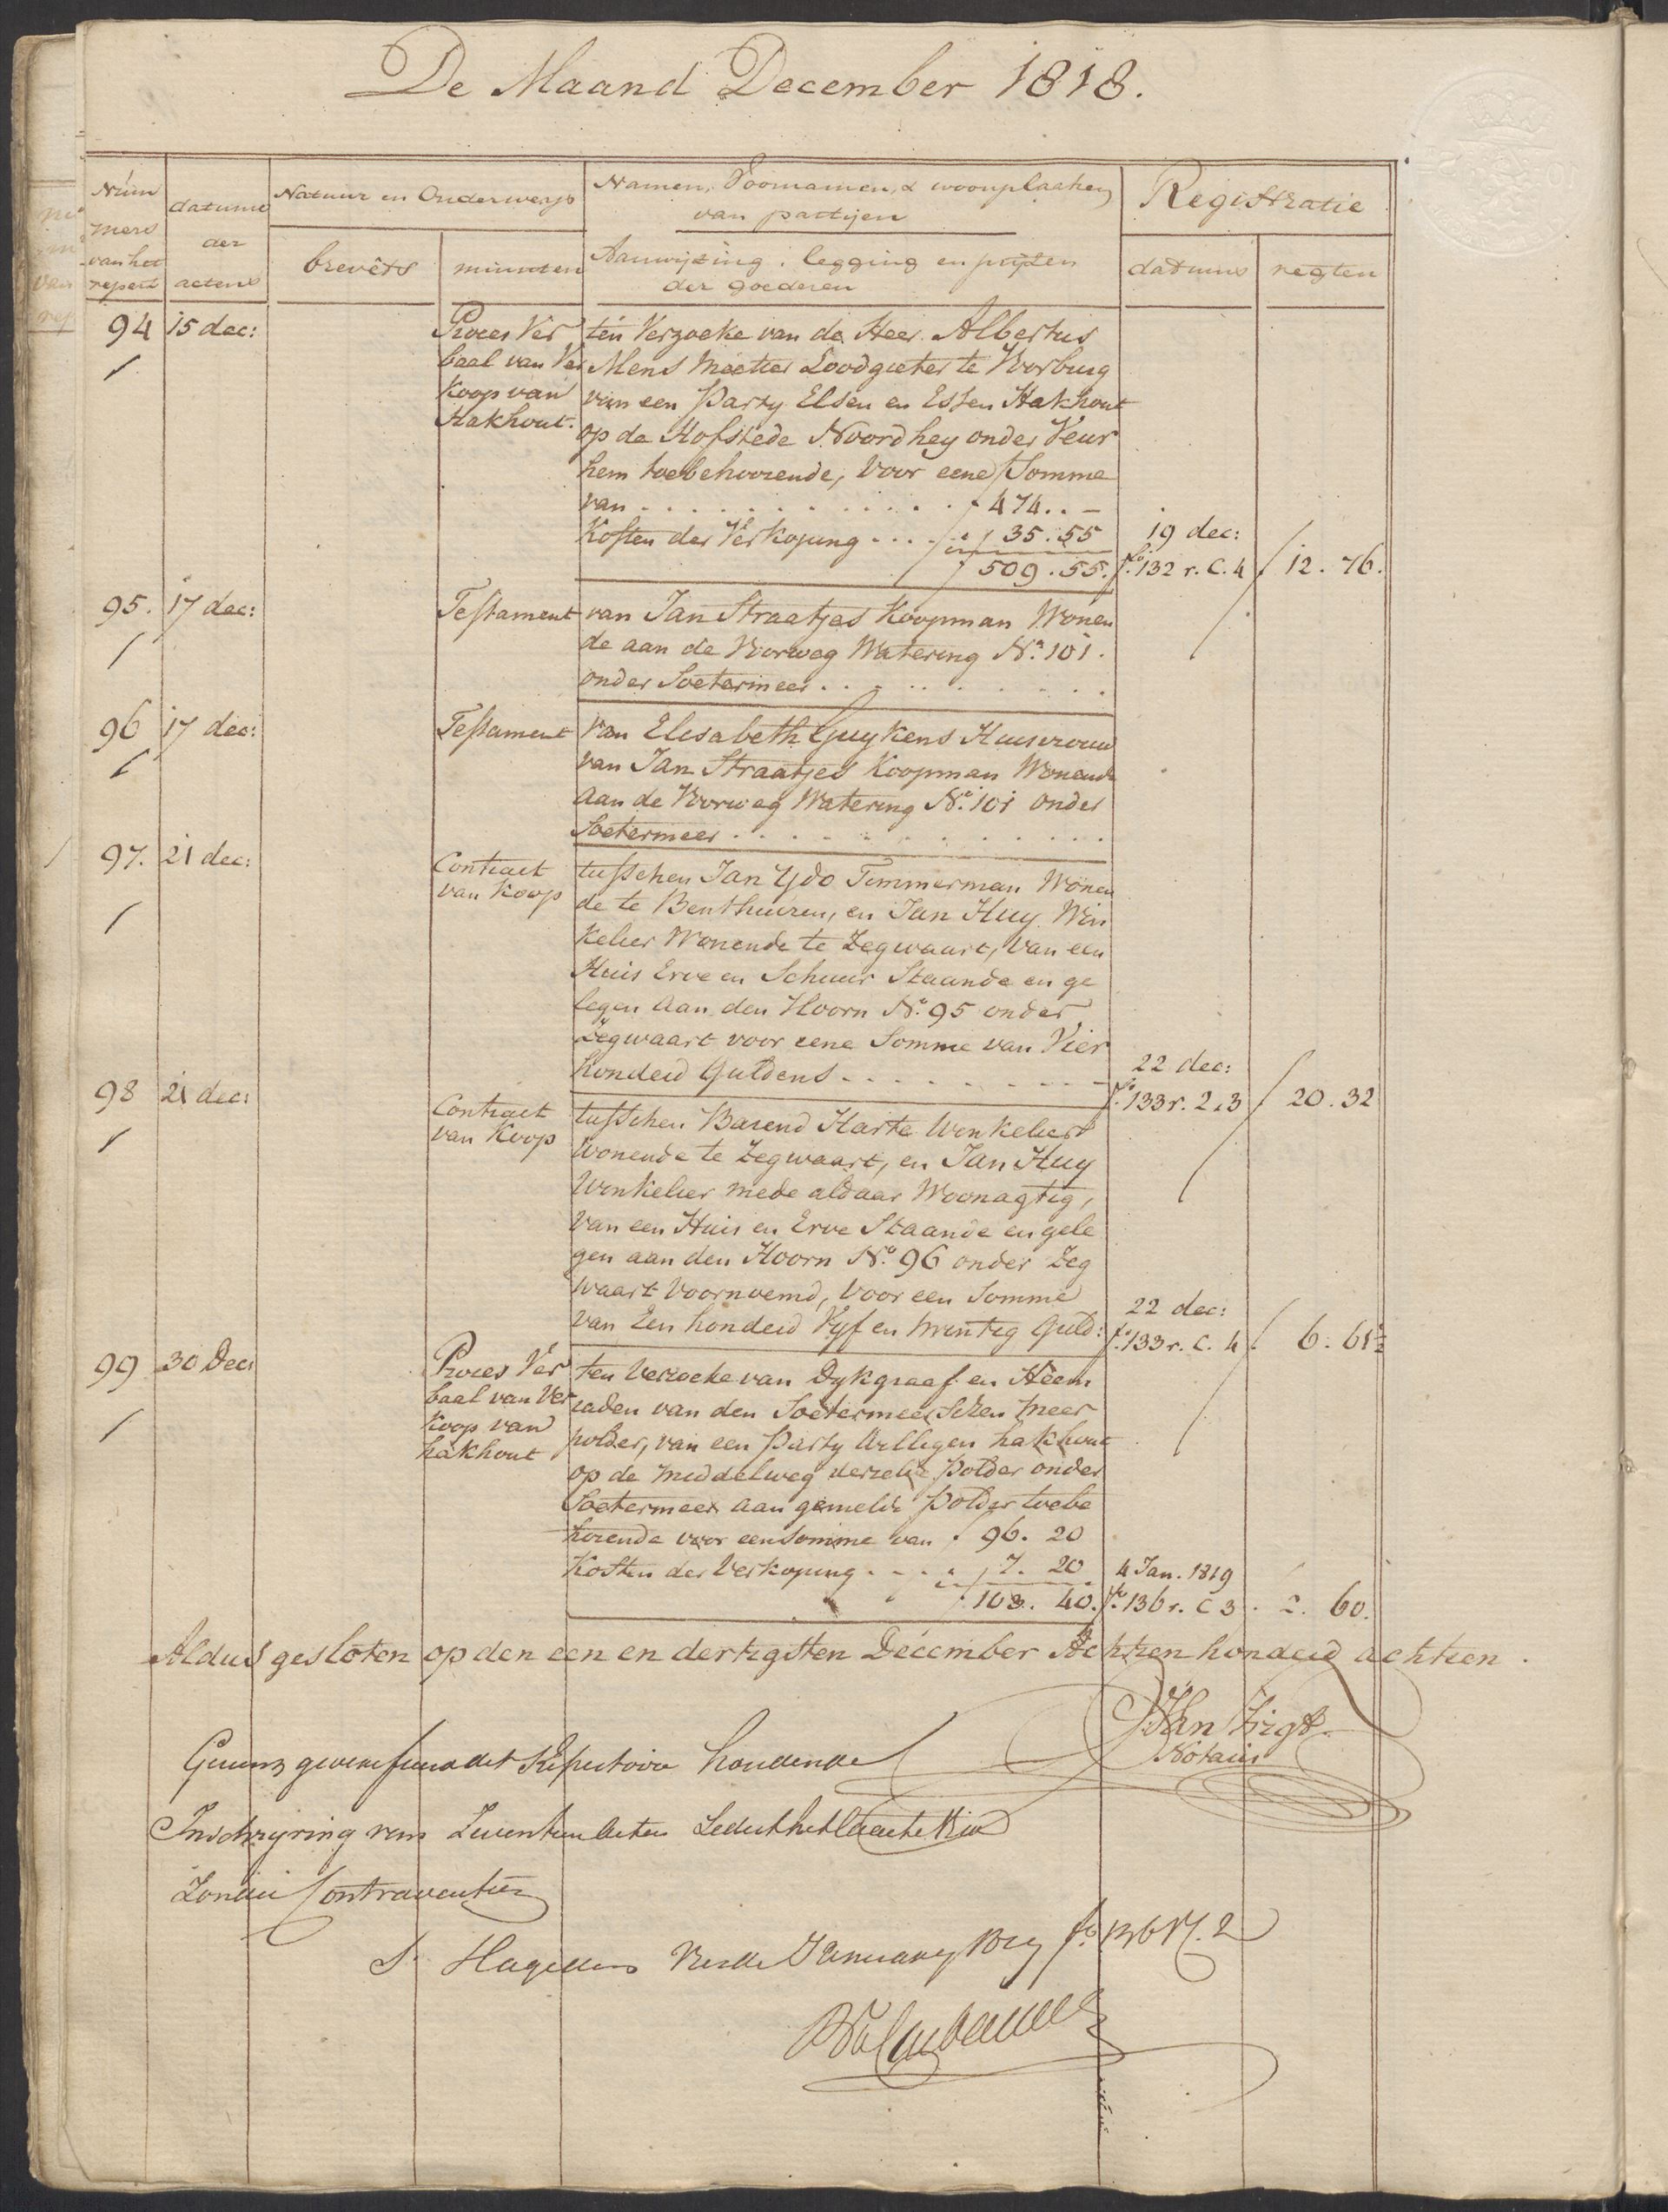 De Maand December 1818.
Num
mers
van het
repert
datums
der
actens
Natuur en Onderwerp
brevêts
minuten
Namen, Voornamen, & woonplaatsen
van partijen
Aanwijzing, legging en prijzen
der goederen
Registratie
datums
regten
94 15 dec:
Proces Ver
baal van Ver
koop van
Hakhout.
ten Verzoeke van de Heer Albertus
Mens Meester Loodgieter te Voorburg
van een Party Elsen en Essen Hakhout
op de Hofstede Noordhey onder Veur
hem toebehoorende, voor eene Somme
van . . . . . . . . . . . . 474 . . -
Kosten der Verkoping . . . . 35 . 55
509 . 55.
19 dec:
fo. 132 r. C. 4
12 . 76.
95. 17 dec:
Testament
van Jan Straatjes Koopman Wonen
de aan de Voorweg Watering No. 101.
onder Soetermeer . . . . . . . . .
96 17 dec:
Testament
van Elesabeth Guykens Huisvrouw
van Jan Straatjes Koopman Wonende
aan de Voorweg Watering No. 101 onder
Soetermeer . . . . . . . . . . . .
97. 21 dec:
Contract
van Koop
tusschen Jan Ydo Timmerman Wonen
de te Benthuizen, en Jan Huy Win
kelier Wonende te Zegwaart, van een
Huis Erve en Schuur Staande en ge
legen aan den Hoorn No. 95 onder
Zegwaart voor eene Somme van Vier
honderd Guldens . . . . . . . . .
22 dec:
fo. 133 r. 2 . 3
20 . 32
98 21 dec:
Contract
van Koop
tusschen Barend Harte Winkelier
wonende te Zegwaart, en Jan Huy
Winkelier mede aldaar Woonagtig,
van een Huis en Erve Staande en gele
gen aan den Hoorn No. 96 onder Zeg
waart voornoemd, voor een Somme
van Een honderd Vyf en twintig Guld:
22 dec:
fo. 133 r. C. 4
6 . 61½
99 30 Dec:
Proces Ver
baal van Ver
koop van
hakhout
ten verzoeke van Dykgraaf en Heem
raden van den Soetermeerschen Meer
polder, van een Party Willigen hakhout
op de middelweg derzelve Polder onder
Soetermeer aan gemelde Polder toebe
horende voor een somme van . 96. 20
Kosten der Verkoping . . . . 7. 20
103. 40.
4 Jan. 1819
fo. 136 r. C 3
2. 60.
Aldus gesloten op den een en dertigsten December Achtien honderd achtien.
Van
Notaris
Repertoire houdende
Inschryving van
Zonder Contraventien
January 1819 fo 136